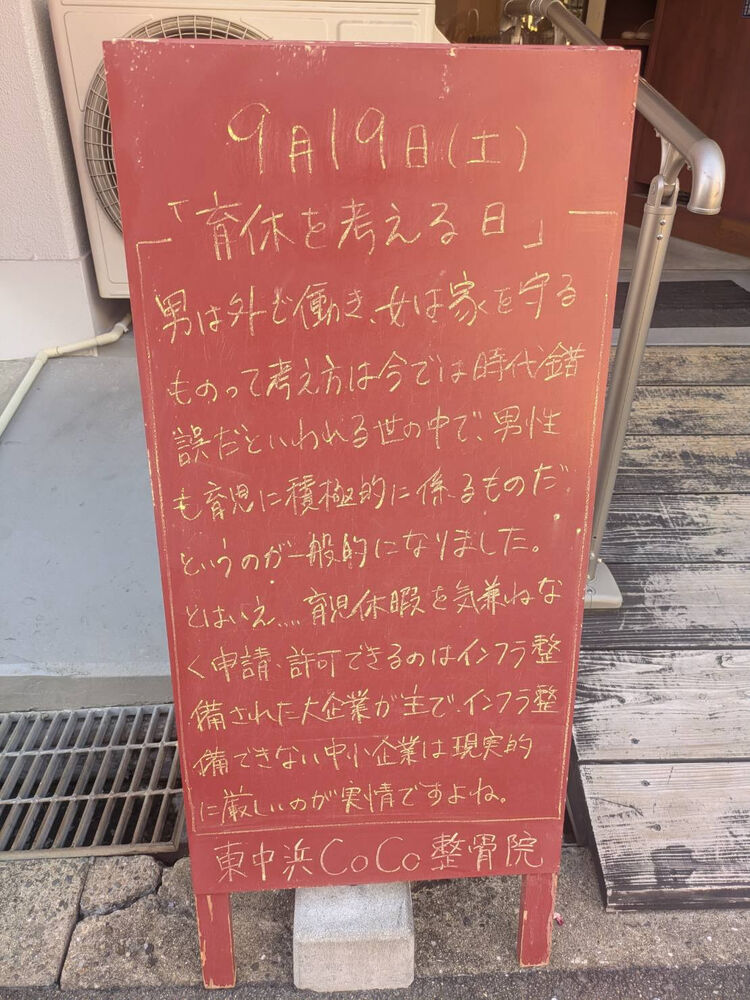 9月19日(土)
「育休を考える日」
男は外で働き、女は家を守る
ものって考え方は今では時代錯
誤だといわれる世の中で、男性
も育児に積極的に係るものだ、
というのが一般的になりました。
とはいえ....育児休暇を気兼ねな
く申請・許可できるのはインフラ整
備された大企業が主で、インフラ整
備できない中小企業は現実的
に厳しいのが実情ですよね。
東中浜CoCo整骨院